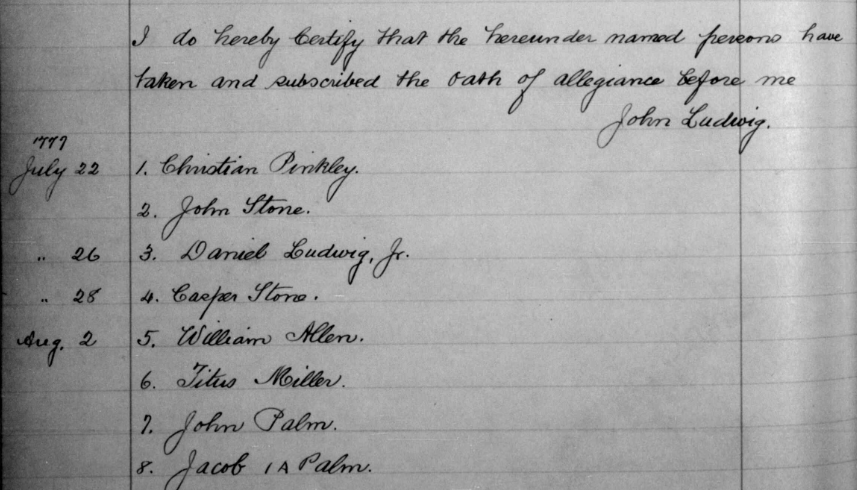 I do hereby Certify that the hereunder named persons have
taken and subscribed the Oath of allegiance before me
John Ludwig.
1777
July 22 1. Christian Pinkley.
2. John Stone.
" 26 3. Daniel Ludwig, Jr.
" 28 4. Casper Stone.
Aug. 2 5. William Allen.
6. Titus Miller.
7. John Palm.
8. Jacob 1 A Palm.